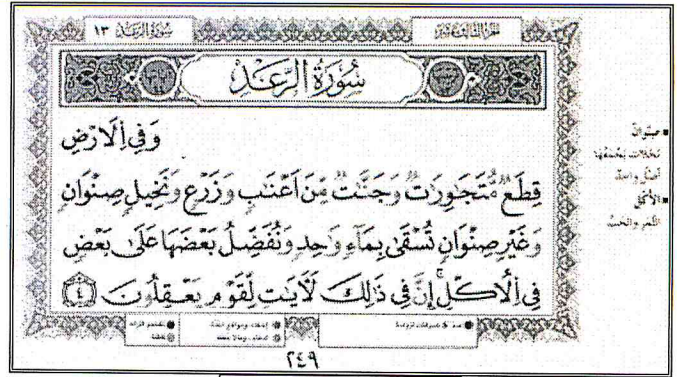 الجزء الثالث عشر
سُورَةُ الرَّعْدِ ١٣
سُورَةُ الرَّعْدِ
وَفِي اِلَارْضِ
قِطَعٌ مُّتَجَٰوِرَٰتٌ وَجَنَّٰتٌ مِّنَ اَعْنَٰبٍ وَزَرْعٍ وَنَخِيلٍ صِنْوَانٍ
وَغَيْرِ صِنْوَانٍ تُسْقَىٰ بِمَآءٍ وَٰحِدٍ وَنُفَضِّلُ بَعْضَهَا عَلَىٰ بَعْضٍ
فِي اِلُاكْلِ إِنَّ فِي ذَٰلِكَ لَأٓيَٰتٍ لِّقَوْمٍ يَعْقِلُونَ ٤
صنوانٌ
نخلات يجمعها
أصل واحد
الأكل
الثمر والحب
٢٤٩